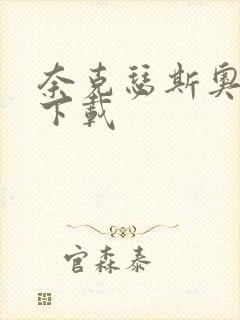 奈克瑟斯奥
下载
官森泰